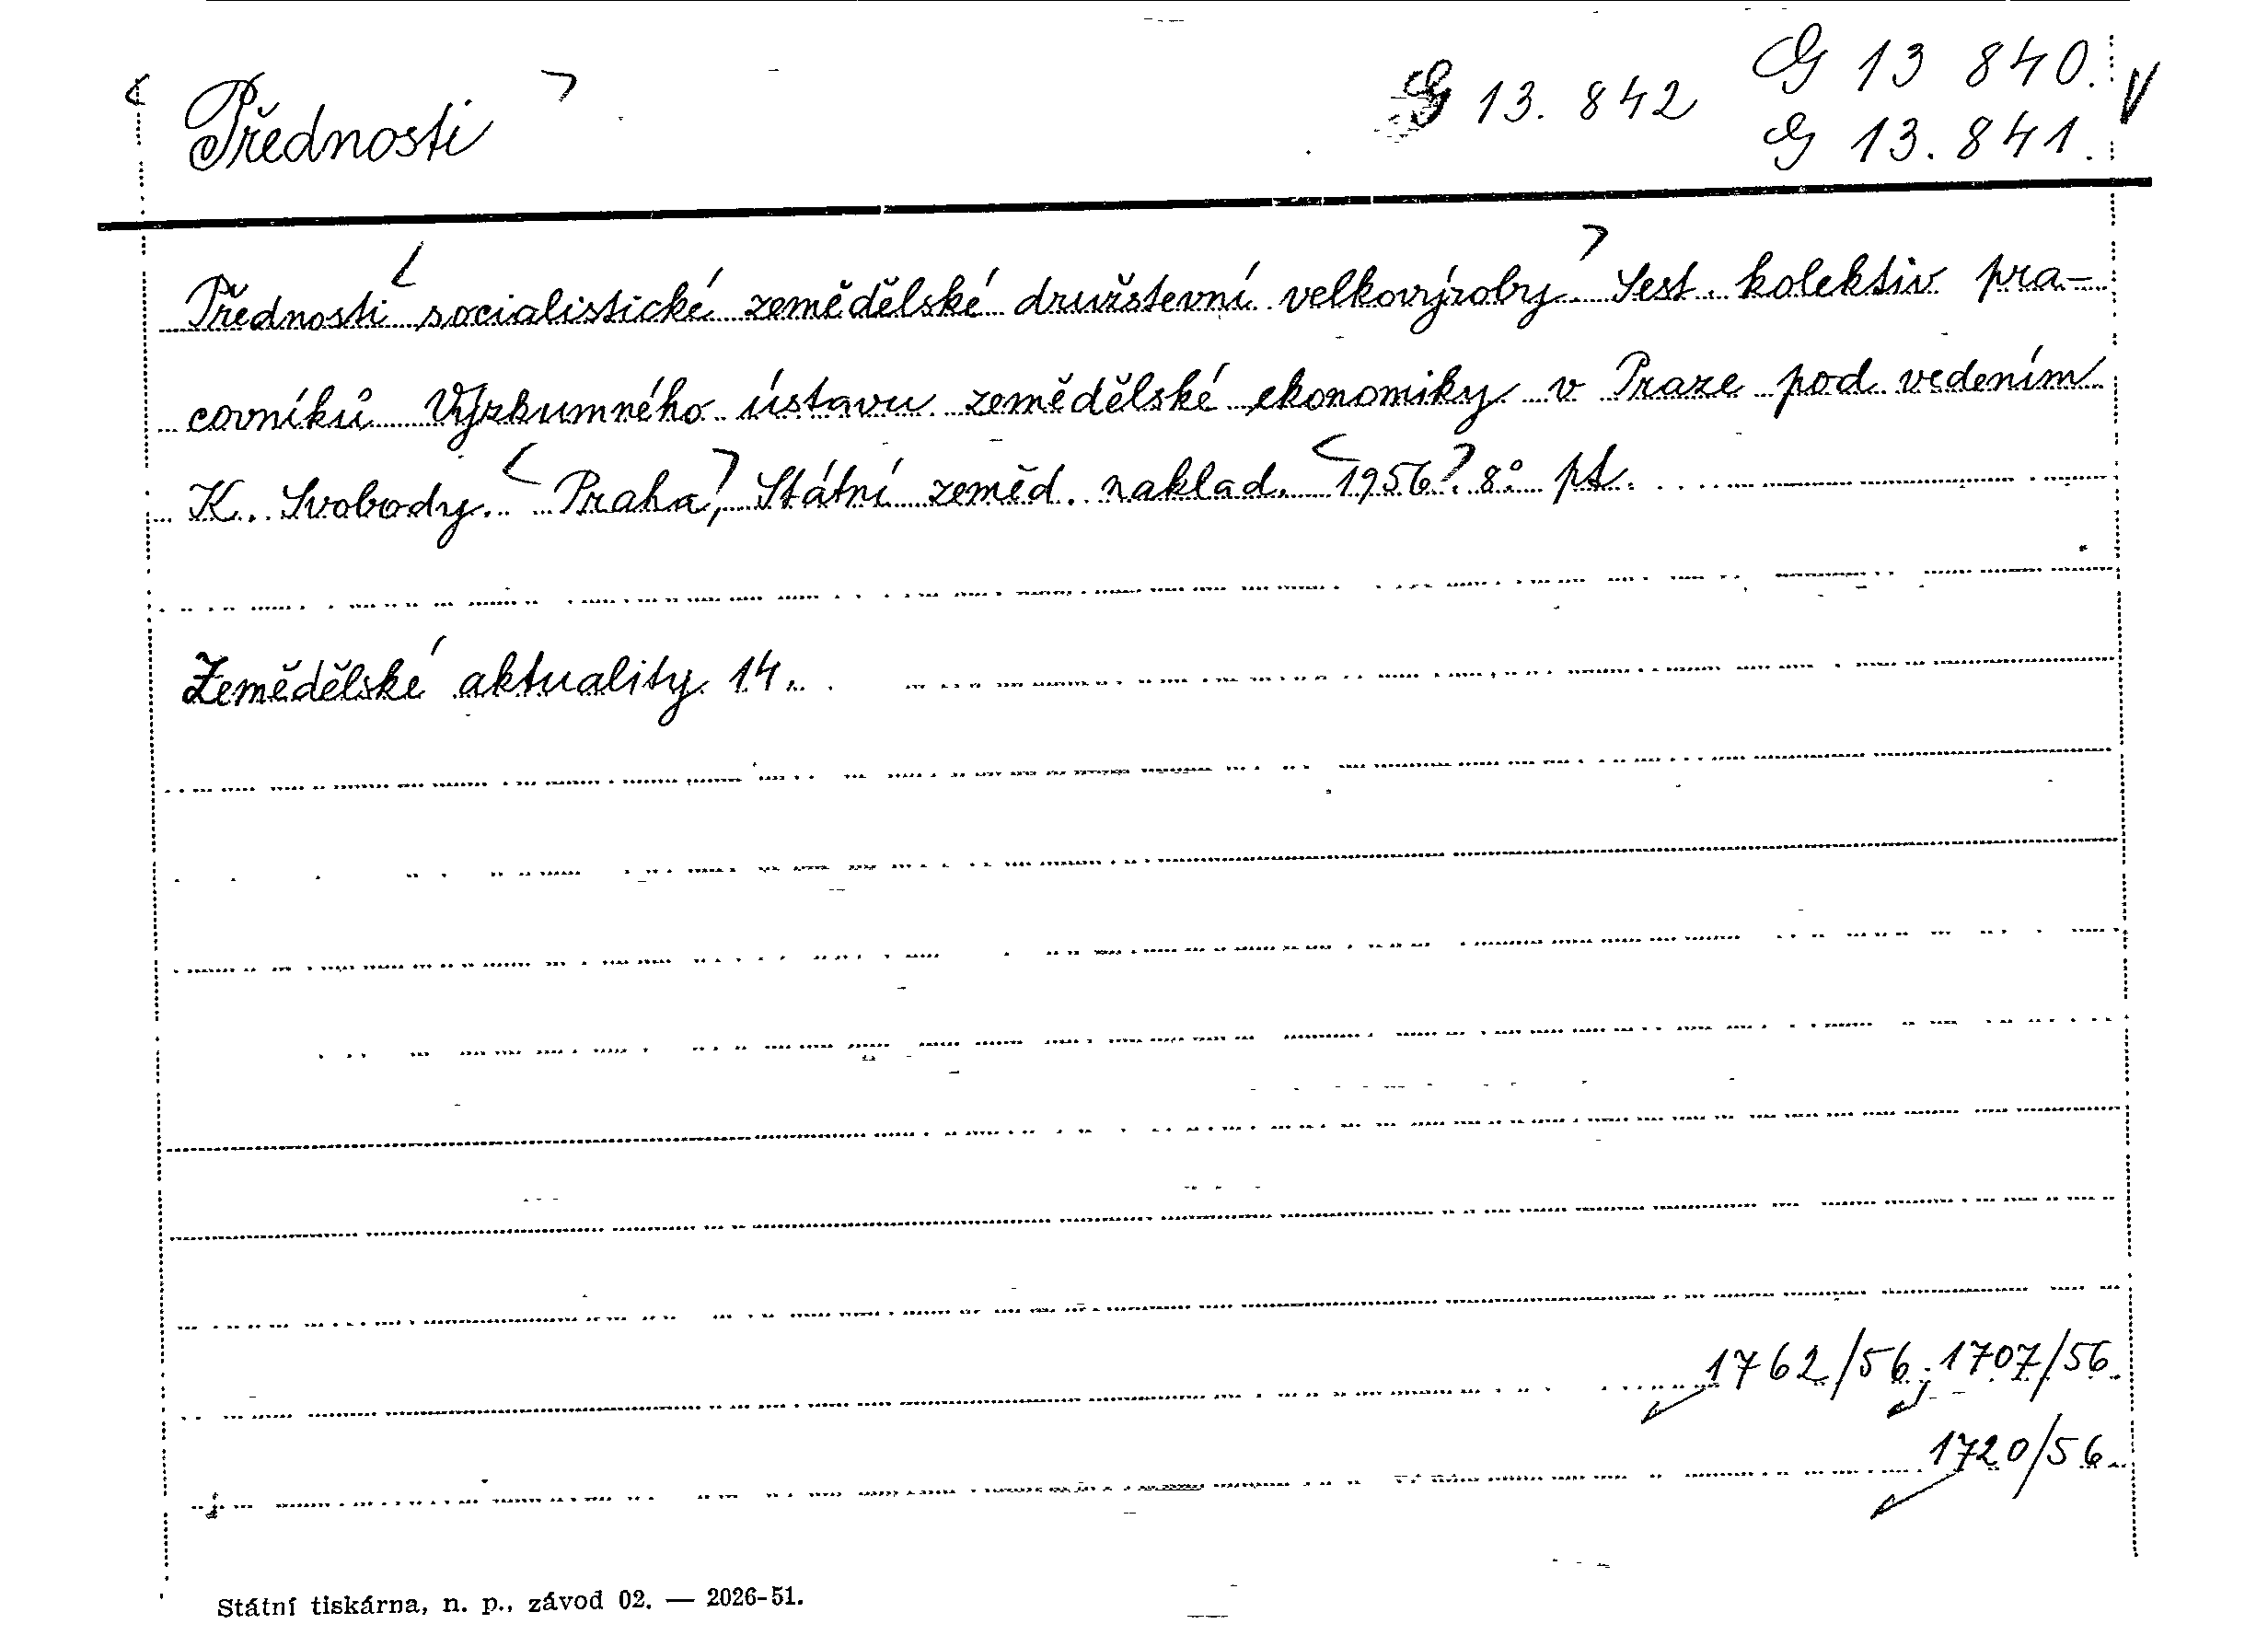 Přednosti
G 13. 842
G 13 840.
G 13. 841.
Přednosti socialistické zemědělské družstevní velkovýroby. Sest. kolektiv pra-
covníků Výzkumného ústavu zemědělské ekonomiky v Praze pod vedením
K. Svobody. Praha, Státní zeměd. naklad. 1956. 8° pt.
Zemědělské aktuality 14.
1762/56, 1707/56.
1720/56.
Státní tiskárna, n. p., závod 02. — 2026-51.